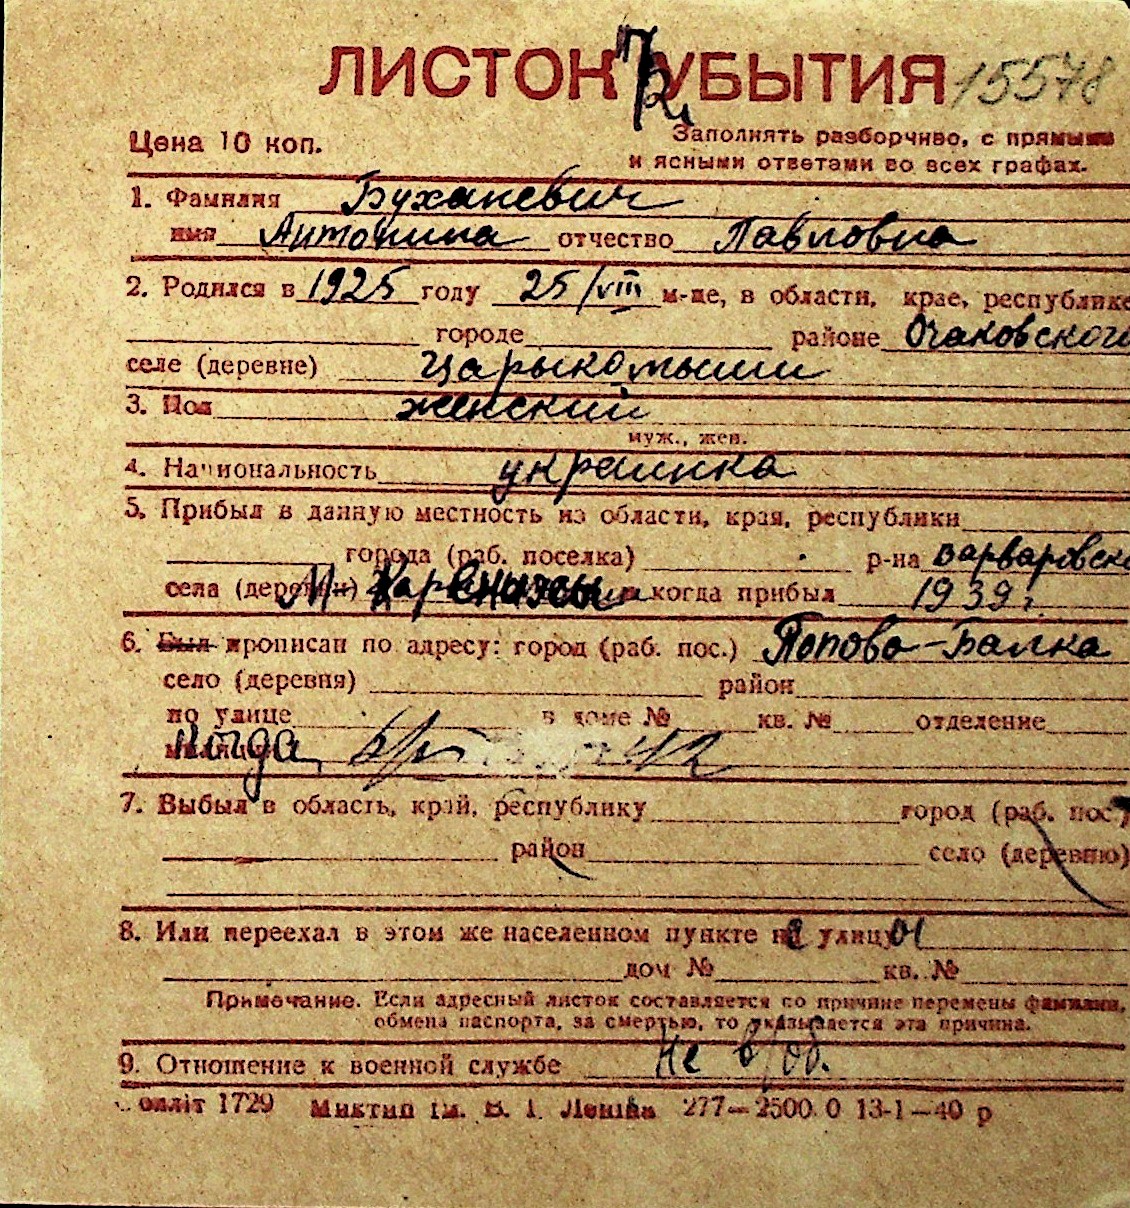 ЛИСТОК УБЫТИЯ 15578
Цена 10 коп.
Заполнять разборчиво, с прямыми
и ясными ответами во всех графах.
1. Фамилия Буханевич
имя Антонина отчество Павловна
2. Родился в 1925 году 25/VIII м-це, в области, крае, республике
городе районе Очаковского
селе (деревне) Царыкомыши
3. Пол женский
муж., жен.
4. Национальность украинка
5. Прибыл в данную местность из области, края, республики
города (раб. поселка) р-на Варваровско
села (деревни) и когда прибыл 1939 г.
6. Был прописан по адресу: город (раб. пос.) Попово-Балка
село (деревня) район
по улице в доме № кв. № отделение
милиции
7. Выбыл в область, край, республику город (раб. пос.)
район село (деревню)
8. Или переехал в этом же населенном пункте на улицу
дом № кв. №
Примечание. Если адресный листок составляется по причине перемены фамилии,
обмена паспорта, за смертью, то указывается эта причина.
9. Отношение к военной службе Не в/об.
1729 ім. В. І. Леніна 277—2500.0 13-1—40 р